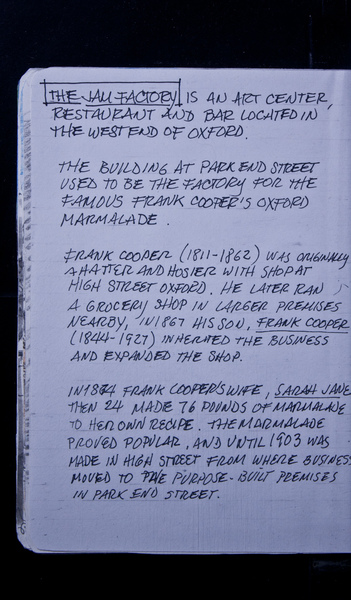 THE JAM FACTORY IS AN ART CENTER,
RESTAURANT AND BAR LOCATED IN
THE WEST END OF OXFORD.
THE BUILDING AT PARK END STREET
USED TO BE THE FACTORY FOR THE
FAMOUS FRANK COOPER'S OXFORD
MARMALADE.
FRANK COOPER (1811-1862) WAS ORIGINALLY
A HATTER AND HOSIER WITH SHOP AT
HIGH STREET OXFORD. HE LATER RAN
A GROCERY SHOP IN LARGER PREMISES
NEARBY, IN 1867 HIS SON, FRANK COOPER
(1844-1927) INHERITED THE BUSINESS
AND EXPANDED THE SHOP.
IN 1874 FRANK COOPER'S WIFE, SARAH JANE
THEN 24 MADE 76 POUNDS OF MARMALADE
TO HER OWN RECIPE. THE MARMALADE
PROVED POPULAR, AND UNTIL 1903 WAS
MADE IN HIGH STREET FROM WHERE BUSINESS
MOVED TO PURPOSE-BUILT PREMISES
IN PARK END STREET.